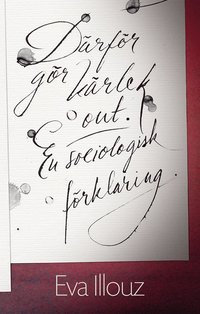 Därför
gör kärlek
ont.
En sociologisk
förklaring.
Eva Illouz